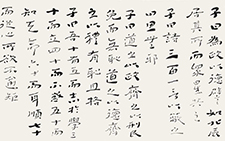 子曰為政以德譬如北辰
居其所而眾星共之
子曰詩三百一言以蔽之
曰思無邪
子曰道之以政齊之以刑民
免而無恥道之以德齊
之以禮有恥且格
子曰吾十有五而志于學三
十而立四十而不惑五十而
知天命六十而耳順七十
而從心所欲不踰矩